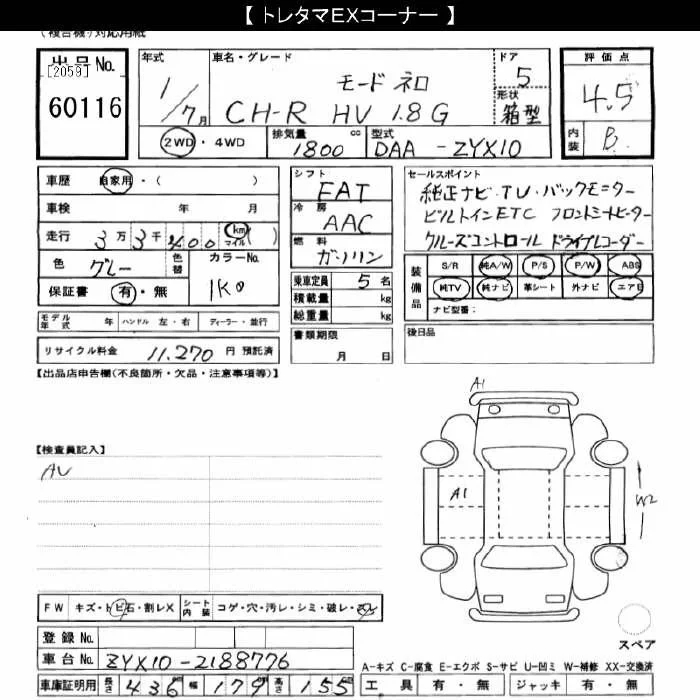 【 トレタマEXコーナー 】
(複合機)対応用紙
出品No.
[2059]
60116
年式
1/7月
車名・グレード
モード ネロ
C-HR HV 1.8G
ドア
5
形状
箱型
評価点
4.5
内装
B
2WD・4WD
排気量 cc
1800
型式
DAA - ZYX10
車歴 自家用・( )
車検 年 月
走行 3万3千400 km マイル ( )
色 グレー 色替 カラーNo. 1K0
保証書 有・無
モデル年式 年 ハンドル 左・右 ディーラー・並行
リサイクル料金 11.270 円 預託済
シフト
FAT
冷房
AAC
燃料
ガソリン
乗車定員 5 名
積載量 kg
総重量 kg
書類期限
月 日
セールスポイント
純正ナビ・TV・バックモニター
ビルトインETC フロントシートヒーター
クルーズコントロール ドライブレコーダー
装備品
S/R 純A/W P/S P/W ABS
純TV 純ナビ 革シート 外ナビ エアB
ナビ型番:
後日品
【出品店申告欄(不良箇所・欠品・注意事項等)】
【検査員記入】
AU
A1
A1
W2
FW キズ・トビ石・割レX シート内装 コゲ・穴・汚レ・シミ・破レ・スレ
登録No.
車台No. ZYX10-2188776
車庫証明用 長さ 436 幅 179 高さ 155
スペア
A-キズ C-腐食 E-エクボ S-サビ U-凹ミ W-補修 XX-交換済
工具 有・無 ジャッキ 有・無